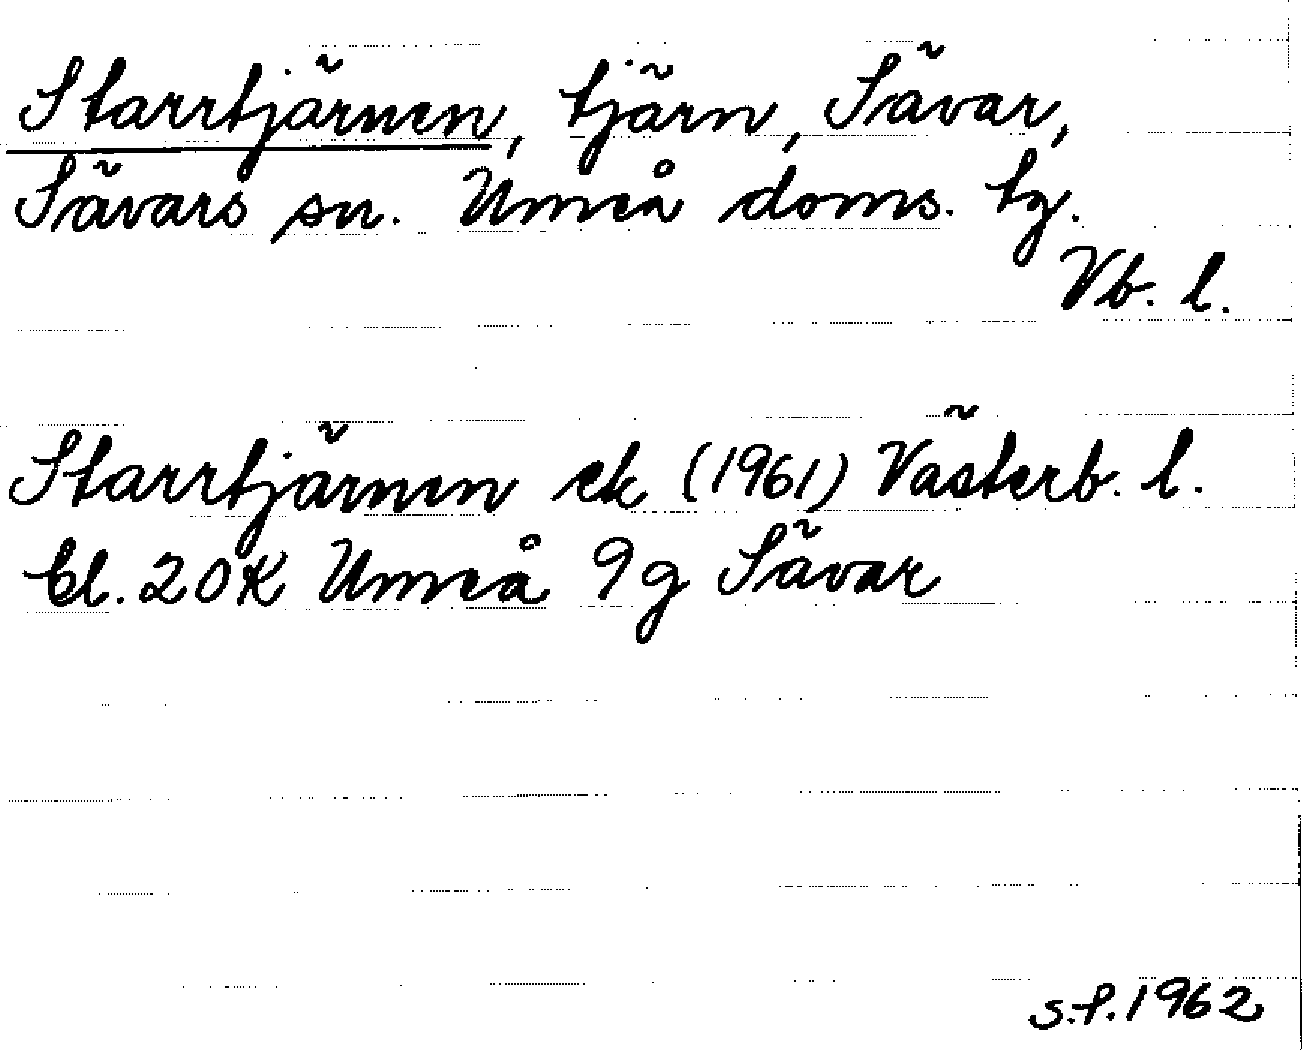 Starrtjärnen, tjärn, Sävar,
Sävars sn. Umeå doms. tg.
Vb. l.
Starrtjärnen ek (1961) Västerb. l.
bl. 20K Umeå 9g Sävar
s.f. 1962